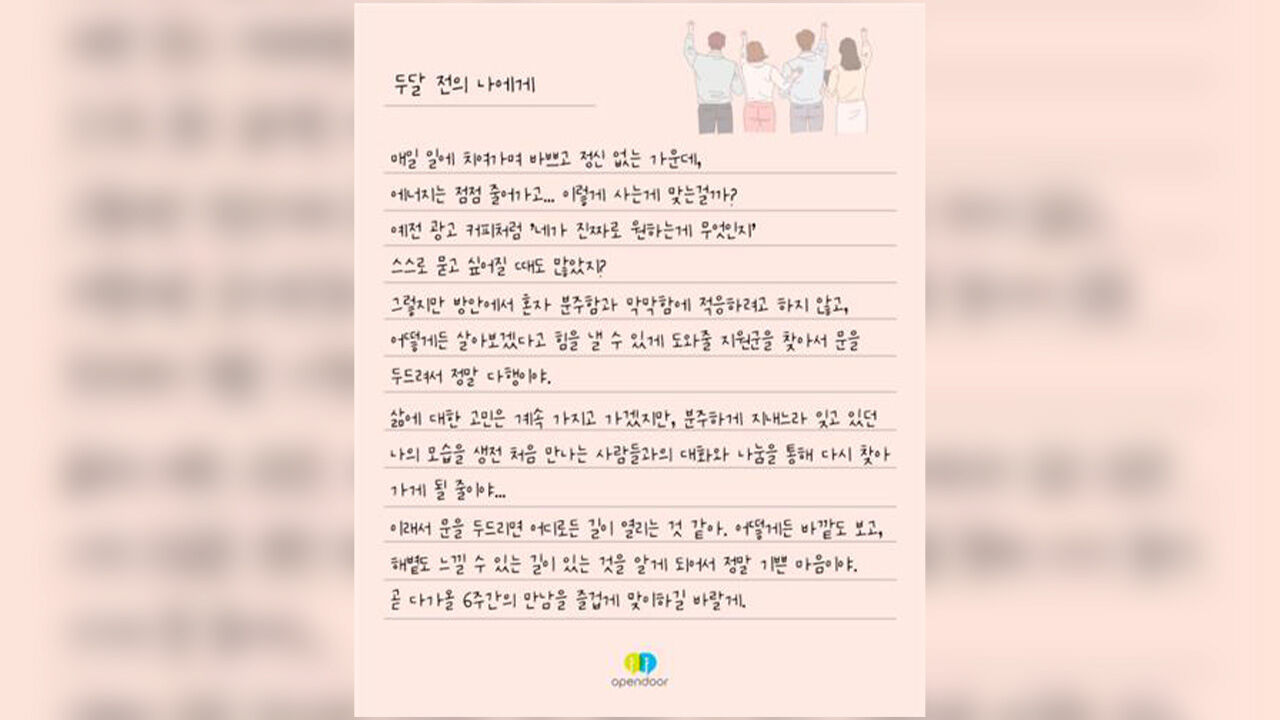 두달 전의 나에게
매일 일에 치여가며 바쁘고 정신 없는 가운데,
에너지는 점점 줄어가고... 이렇게 사는게 맞는걸까?
예전 광고 커피처럼 '네가 진짜로 원하는게 무엇인지'
스스로 묻고 싶어질 때도 많았지?
그렇지만 방안에서 혼자 분주함과 막막함에 적응하려고 하지 않고,
어떻게든 살아보겠다고 힘을 낼 수 있게 도와줄 지원군을 찾아서 문을
두드려서 정말 다행이야.
삶에 대한 고민은 계속 가지고 가겠지만, 분주하게 지내느라 잊고 있던
나의 모습을 생전 처음 만나는 사람들과의 대화와 나눔을 통해 다시 찾아
가게 될 줄이야...
이래서 문을 두드리면 어디로든 길이 열리는 것 같아. 어떻게든 바깥도 보고,
해볕도 느낄 수 있는 길이 있는 것을 알게 되어서 정말 기쁜 마음이야.
곧 다가올 6주간의 만남을 즐겁게 맞이하길 바랄게.
opendoor